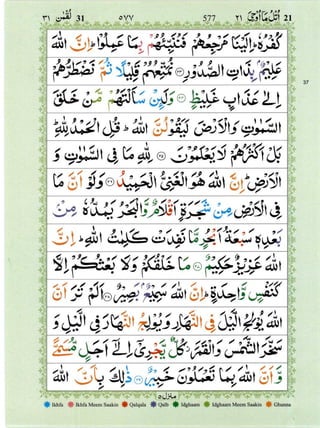 لقمٰن ٣١ ٥٧٧ 577 اتل مااوحی ٢١ 21
كُفْرُهٗ ؕ اِلَيْنَا مَرْجِعُهُمْ فَنُنَبِّئُهُمْ بِمَا عَمِلُوْا ؕ اِنَّ اللّٰهَ
عَلِيْمٌۢ بِذَاتِ الصُّدُوْرِ ۝ نُمَتِّعُهُمْ قَلِيْلًا ثُمَّ نَضْطَرُّهُمْ
اِلٰى عَذَابٍ غَلِيْظٍ ۝ وَلَئِنْ سَاَلْتَهُمْ مَّنْ خَلَقَ
السَّمٰوٰتِ وَالْاَرْضَ لَيَقُوْلُنَّ اللّٰهُ ؕ قُلِ الْحَمْدُ لِلّٰهِ ؕ
بَلْ اَكْثَرُهُمْ لَا يَعْلَمُوْنَ ۝ لِلّٰهِ مَا فِى السَّمٰوٰتِ وَ
الْاَرْضِ ؕ اِنَّ اللّٰهَ هُوَ الْغَنِىُّ الْحَمِيْدُ ۝ وَلَوْ اَنَّ مَا
فِى الْاَرْضِ مِنْ شَجَرَةٍ اَقْلَامٌ وَّالْبَحْرُ يَمُدُّهٗ مِنْۢ
بَعْدِهٖ سَبْعَةُ اَبْحُرٍ مَّا نَفِدَتْ كَلِمٰتُ اللّٰهِ ؕ اِنَّ
اللّٰهَ عَزِيْزٌ حَكِيْمٌ ۝ مَا خَلْقُكُمْ وَلَا بَعْثُكُمْ اِلَّا
كَنَفْسٍ وَّاحِدَةٍ ؕ اِنَّ اللّٰهَ سَمِيْعٌۢ بَصِيْرٌ ۝ اَلَمْ تَرَ اَنَّ
اللّٰهَ يُوْلِجُ الَّيْلَ فِى النَّهَارِ وَيُوْلِجُ النَّهَارَ فِى الَّيْلِ وَ
سَخَّرَ الشَّمْسَ وَالْقَمَرَ ؗ كُلٌّ يَّجْرِىْۤ اِلٰٓى اَجَلٍ مُّسَمًّى
وَّاَنَّ اللّٰهَ بِمَا تَعْمَلُوْنَ خَبِيْرٌ ۝ ذٰلِكَ بِاَنَّ اللّٰهَ
منزل ٥
Ikhfa Ikhfa Meem Saakin Qalqala Qalb Idghaam Idghaam Meem Saakin Ghunna
37